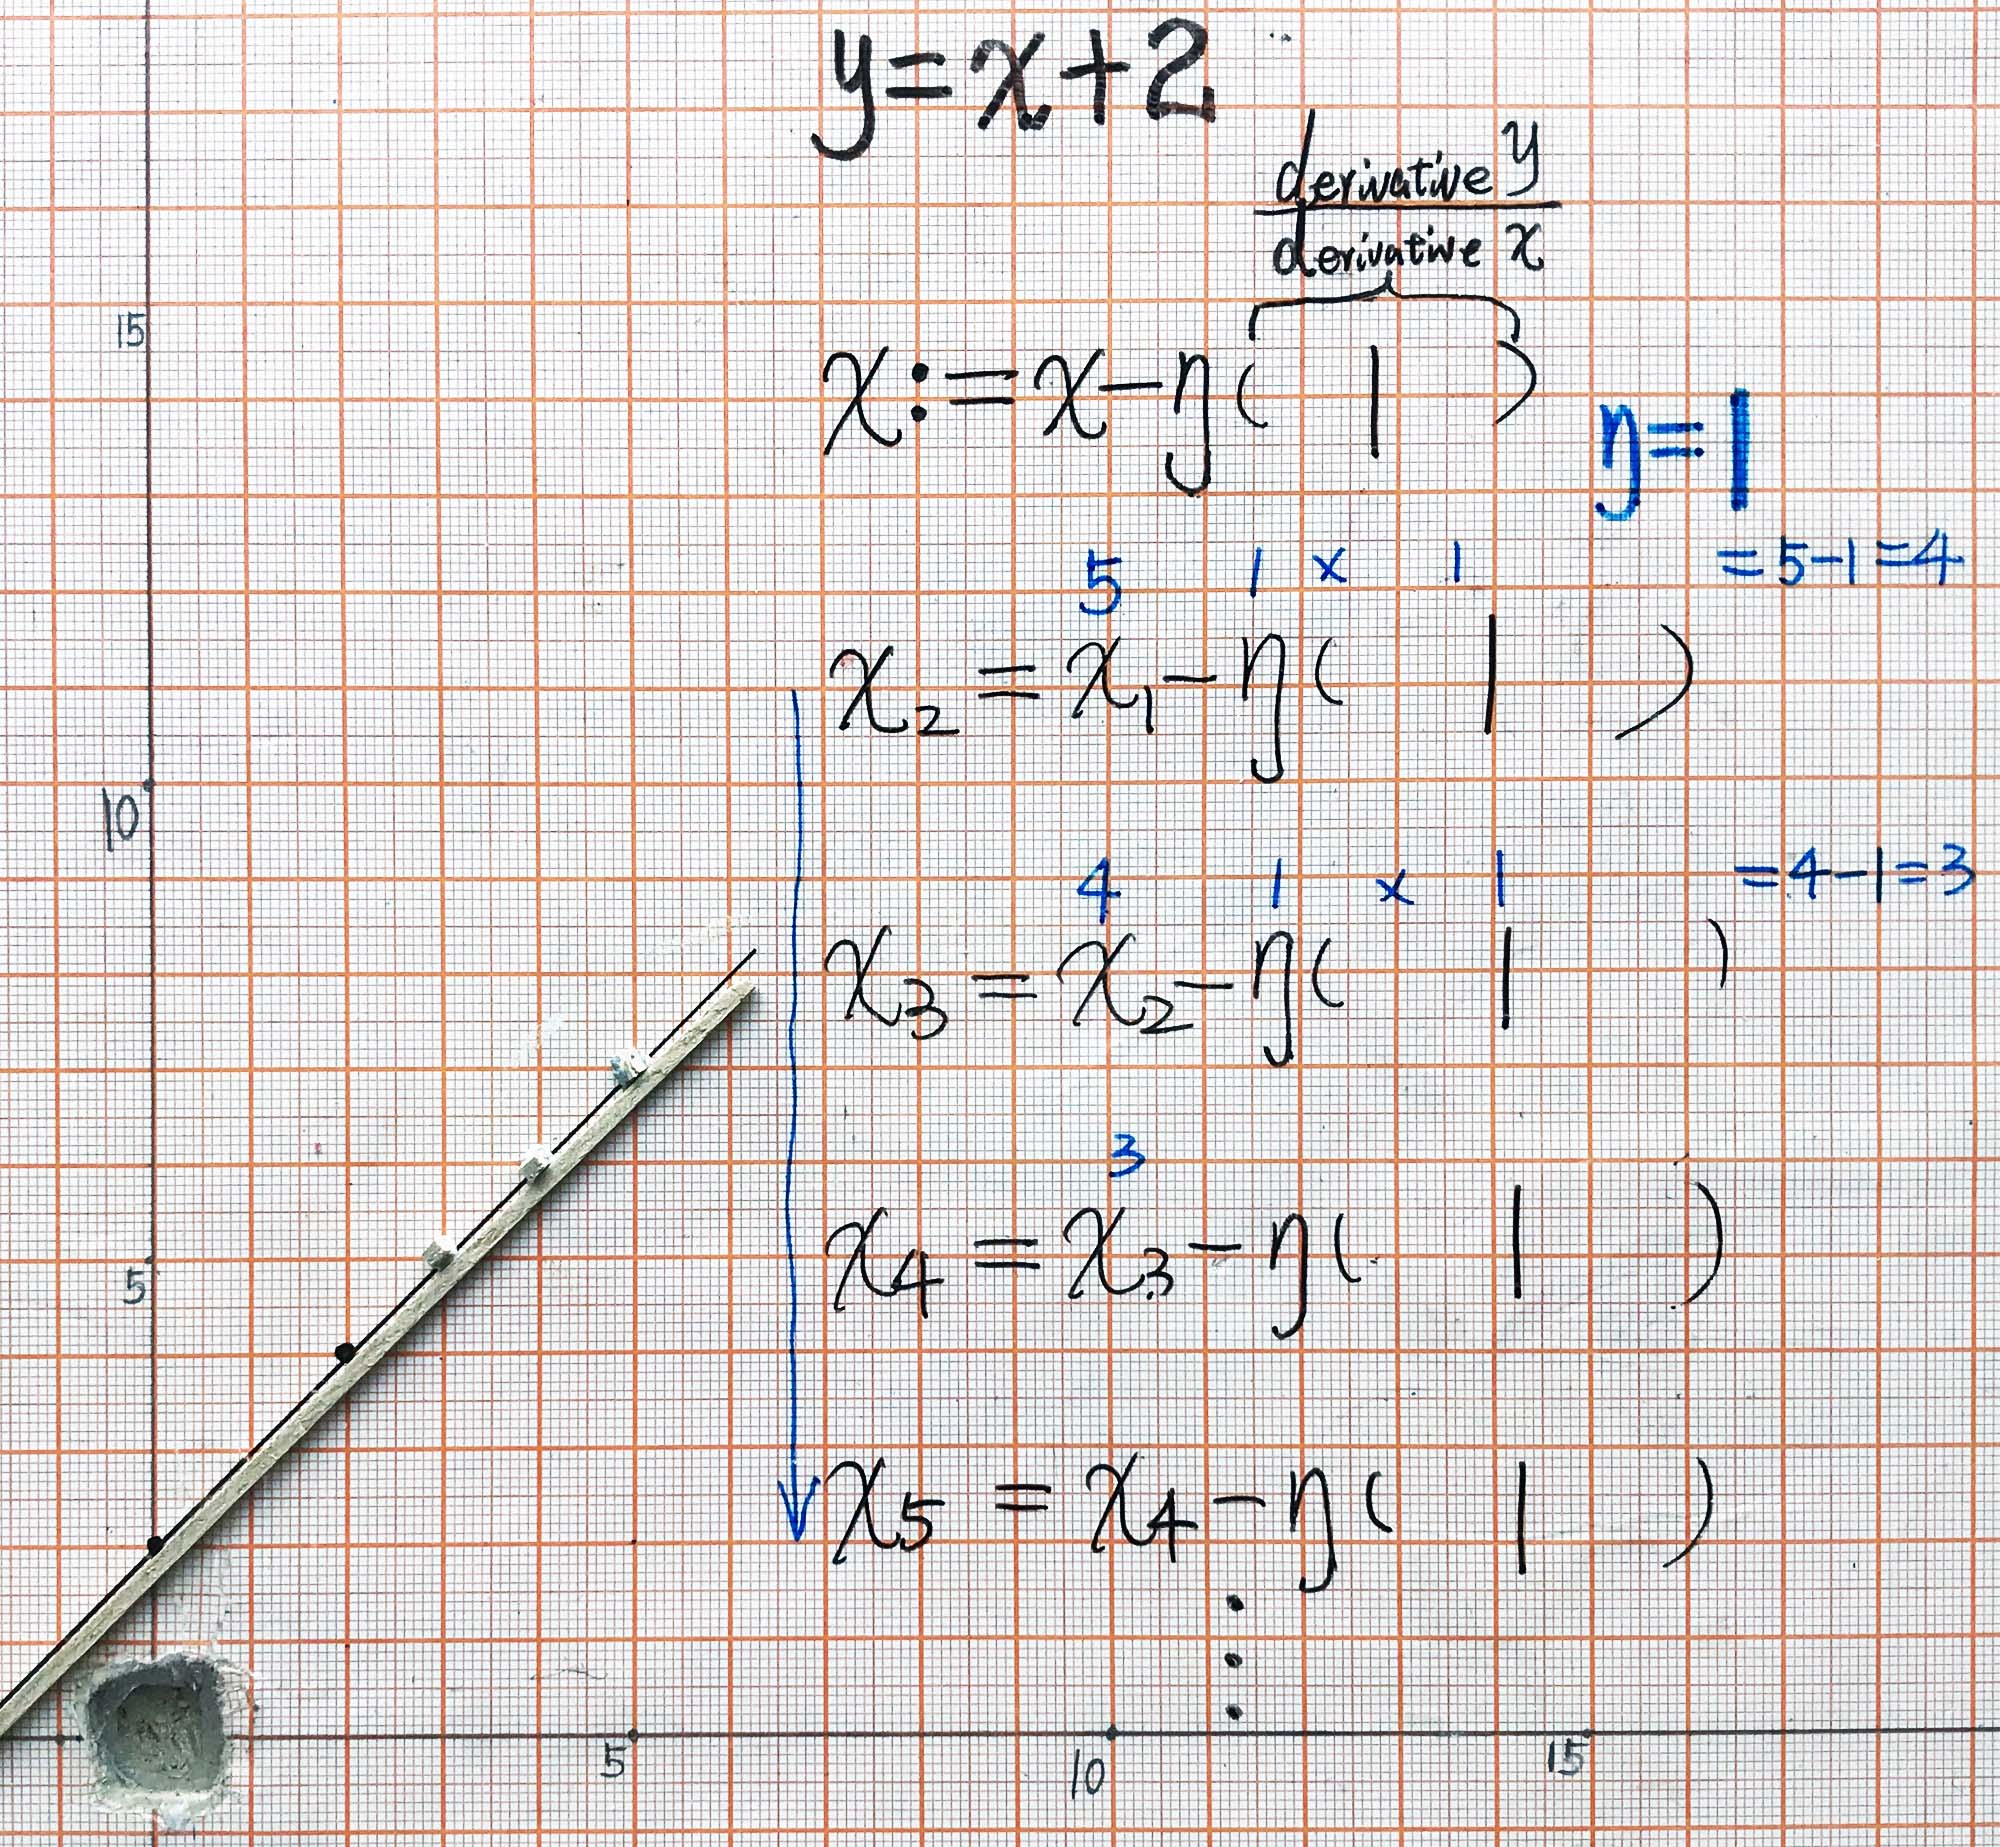 y=x+2
derivative y
derivative x
15
x:=x-η( 1 )
η=1
5 1 x 1 =5-1=4
x₂ = x₁-η( 1 )
10
4 1 x 1 =4-1=3
x₃ = x₂-η( 1 )
3
x₄ = x₃-η( 1 )
5
x₅ = x₄-η( 1 )
5 10 15